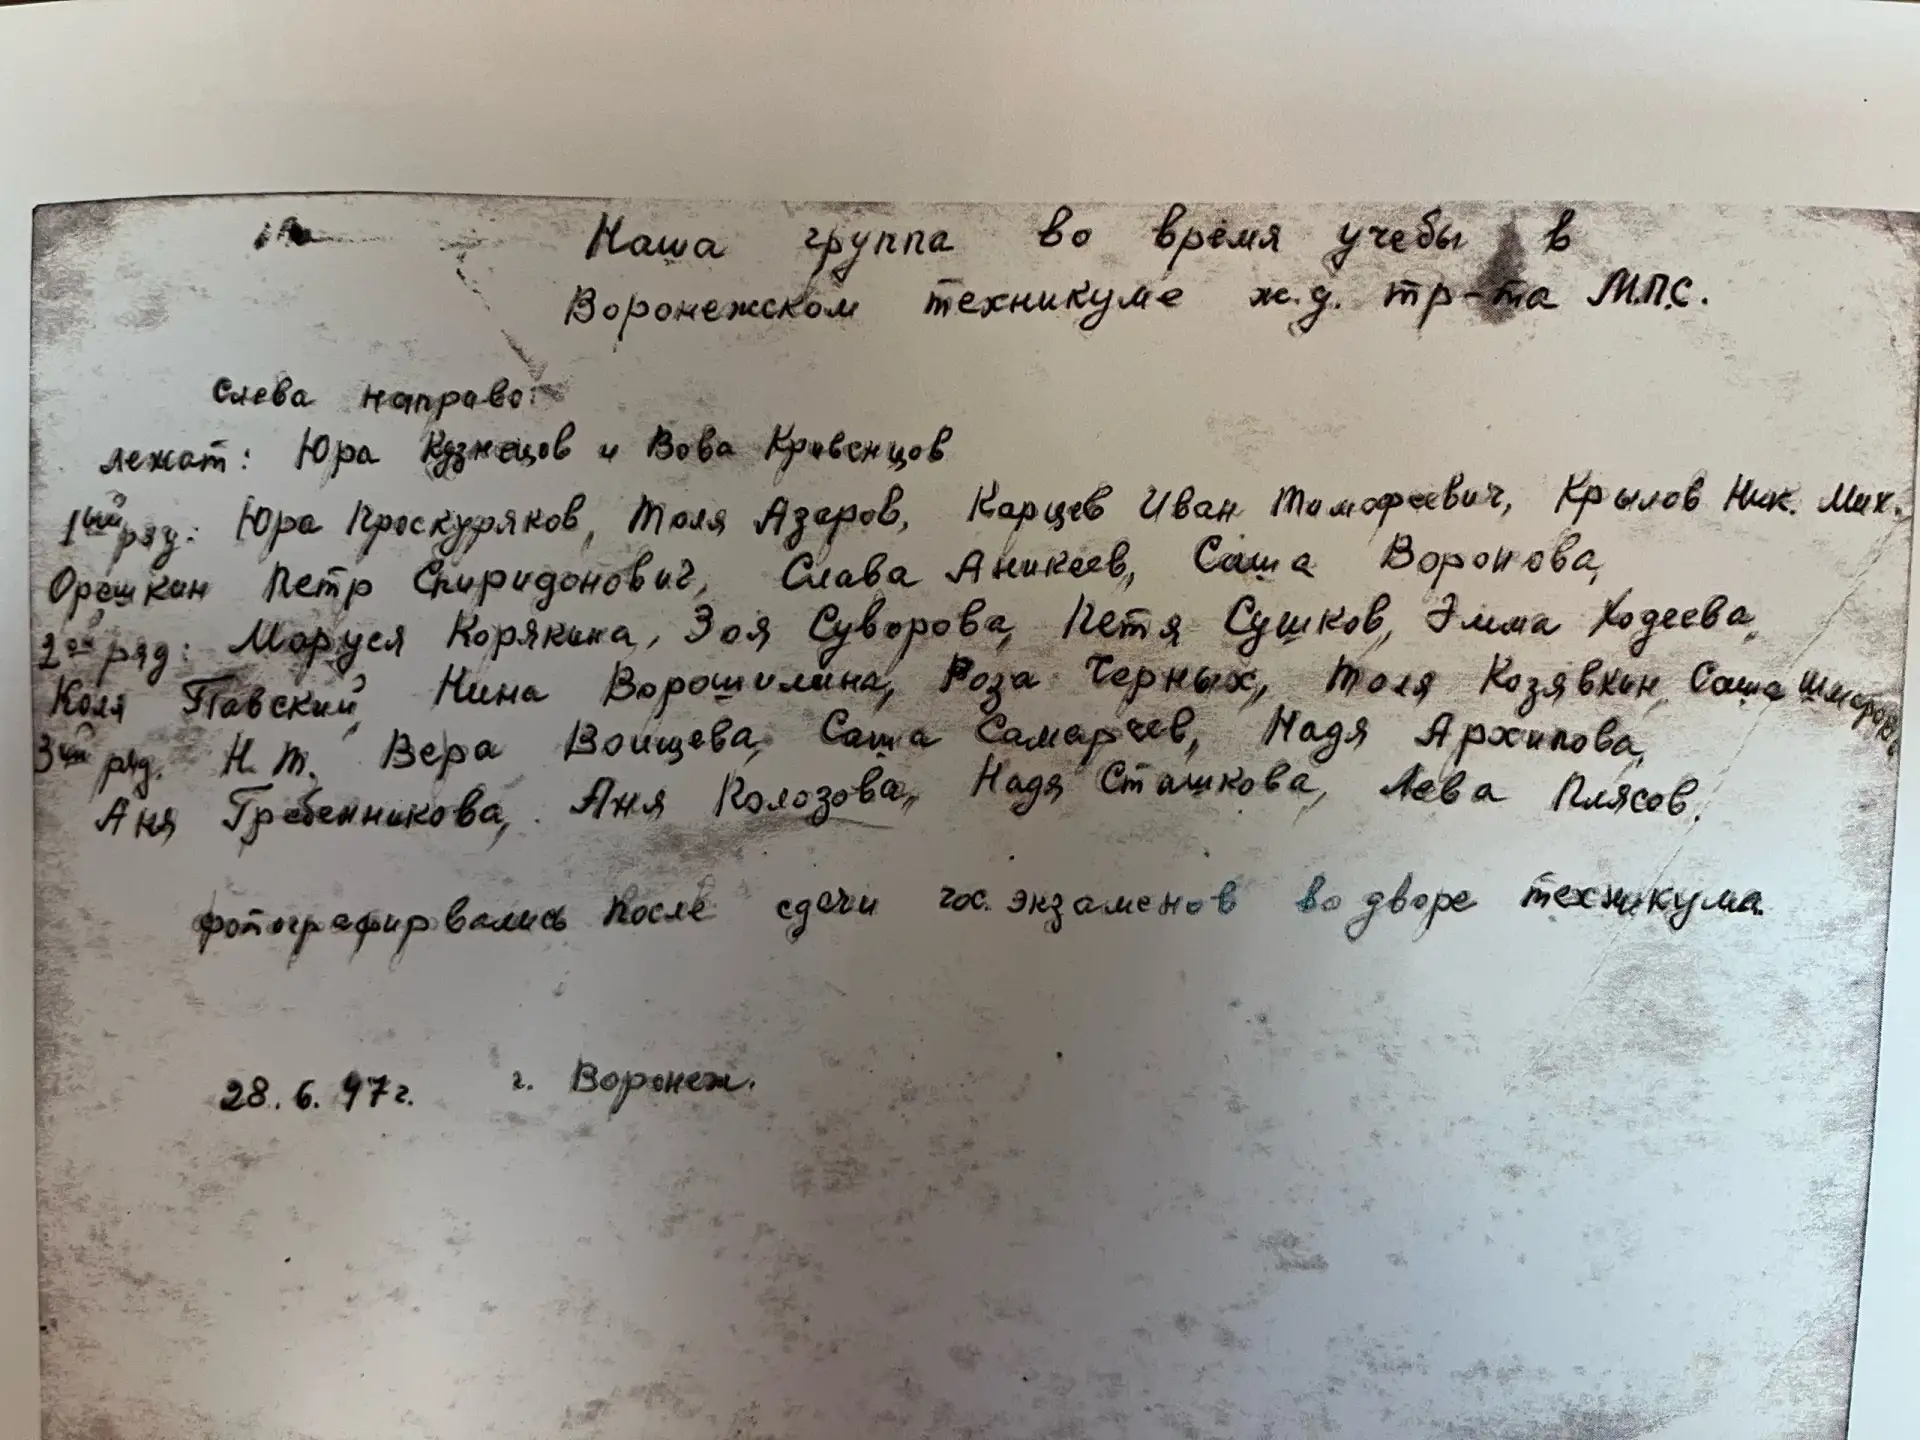 Наша группа во время учебы в
Воронежском техникуме ж.д. тр-та М.П.С.
Слева направо:
лежат: Юра Кузнецов и Вова Кривенцов
1ый ряд: Юра Проскуряков, Толя Азаров, Карцев Иван Тимофеевич, Крылов Ник. Мих.
Орешкин Петр Спиридонович, Слава Аникеев, Саша Воронова,
2ой ряд: Маруся Корякина, Зоя Суворова, Петя Сушков, Эмма Ходеева,
Коля Павский, Нина Ворошилина, Роза Черных, Толя Козявкин, Саша
3ий ряд. Н.Т. Вера Воищева, Саша Самарчев, Надя Архипова,
Аня Гребенникова, Аня Колозова, Надя Сташкова, Лева Плясов.
фотографировались после сдачи гос. экзаменов во дворе техникума.
28.6.47г. г. Воронеж.